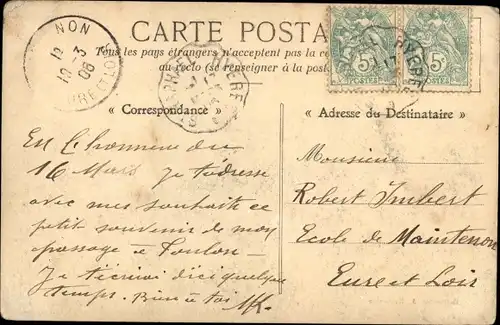 CARTE POSTA
Tous les pays étrangers n'acceptent pas la co
au recto (se renseigner à la poste
NON
12
18 -3
08
EURE ET LOIR
HYERES
5c
5c
POSTES
POSTES
« Correspondance »
« Adresse du Destinataire »
En l'honneur du
16 Mars je t'adresse
avec mes souhaits ce
petit souvenir de mon
passage à Toulon —
Je t'écrirai d'ici quelque
temps. Bien à toi
Monsieur
Robert Imbert
Ecole de Maintenon
Eure et Loir